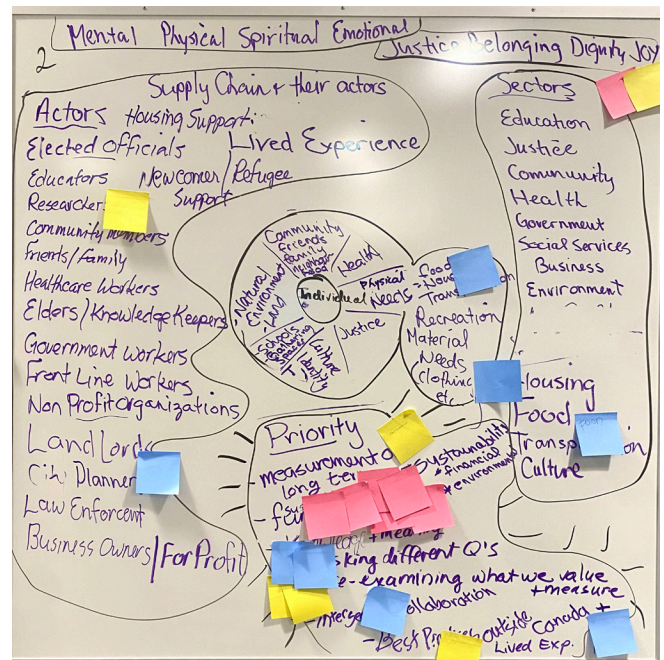 Mental Physical Spiritual Emotional
Justice Belonging Dignity Joy
2
Supply Chain + their actors
Actors
Housing Support
Elected Officials
Lived Experience
Educators
Newcomer/Refugee
Support
Researcher
Community members
Friends/Family
Healthcare Workers
Elders/Knowledge Keepers
Government Workers
Front Line Workers
Non Profit Organizations
Land Lords
City Planner
Law Enforcent
Business Owners/For Profit
Community
friends
family
Health
Natural
Environment
Land
Individual
Physical
Needs
Justice
Schools
Culture
Identity
Food
Recreation
Material
Needs
Clothing
etc
Sectors
Education
Justice
Community
Health
Government
Social Services
Business
Environment
Housing
Food
Culture
Priority
- measurement
long
- Sustainability
* financial
* environment
different Q's
re-examining what we value
+ measure
collaboration
- Best outside Canada +
Lived Exp.